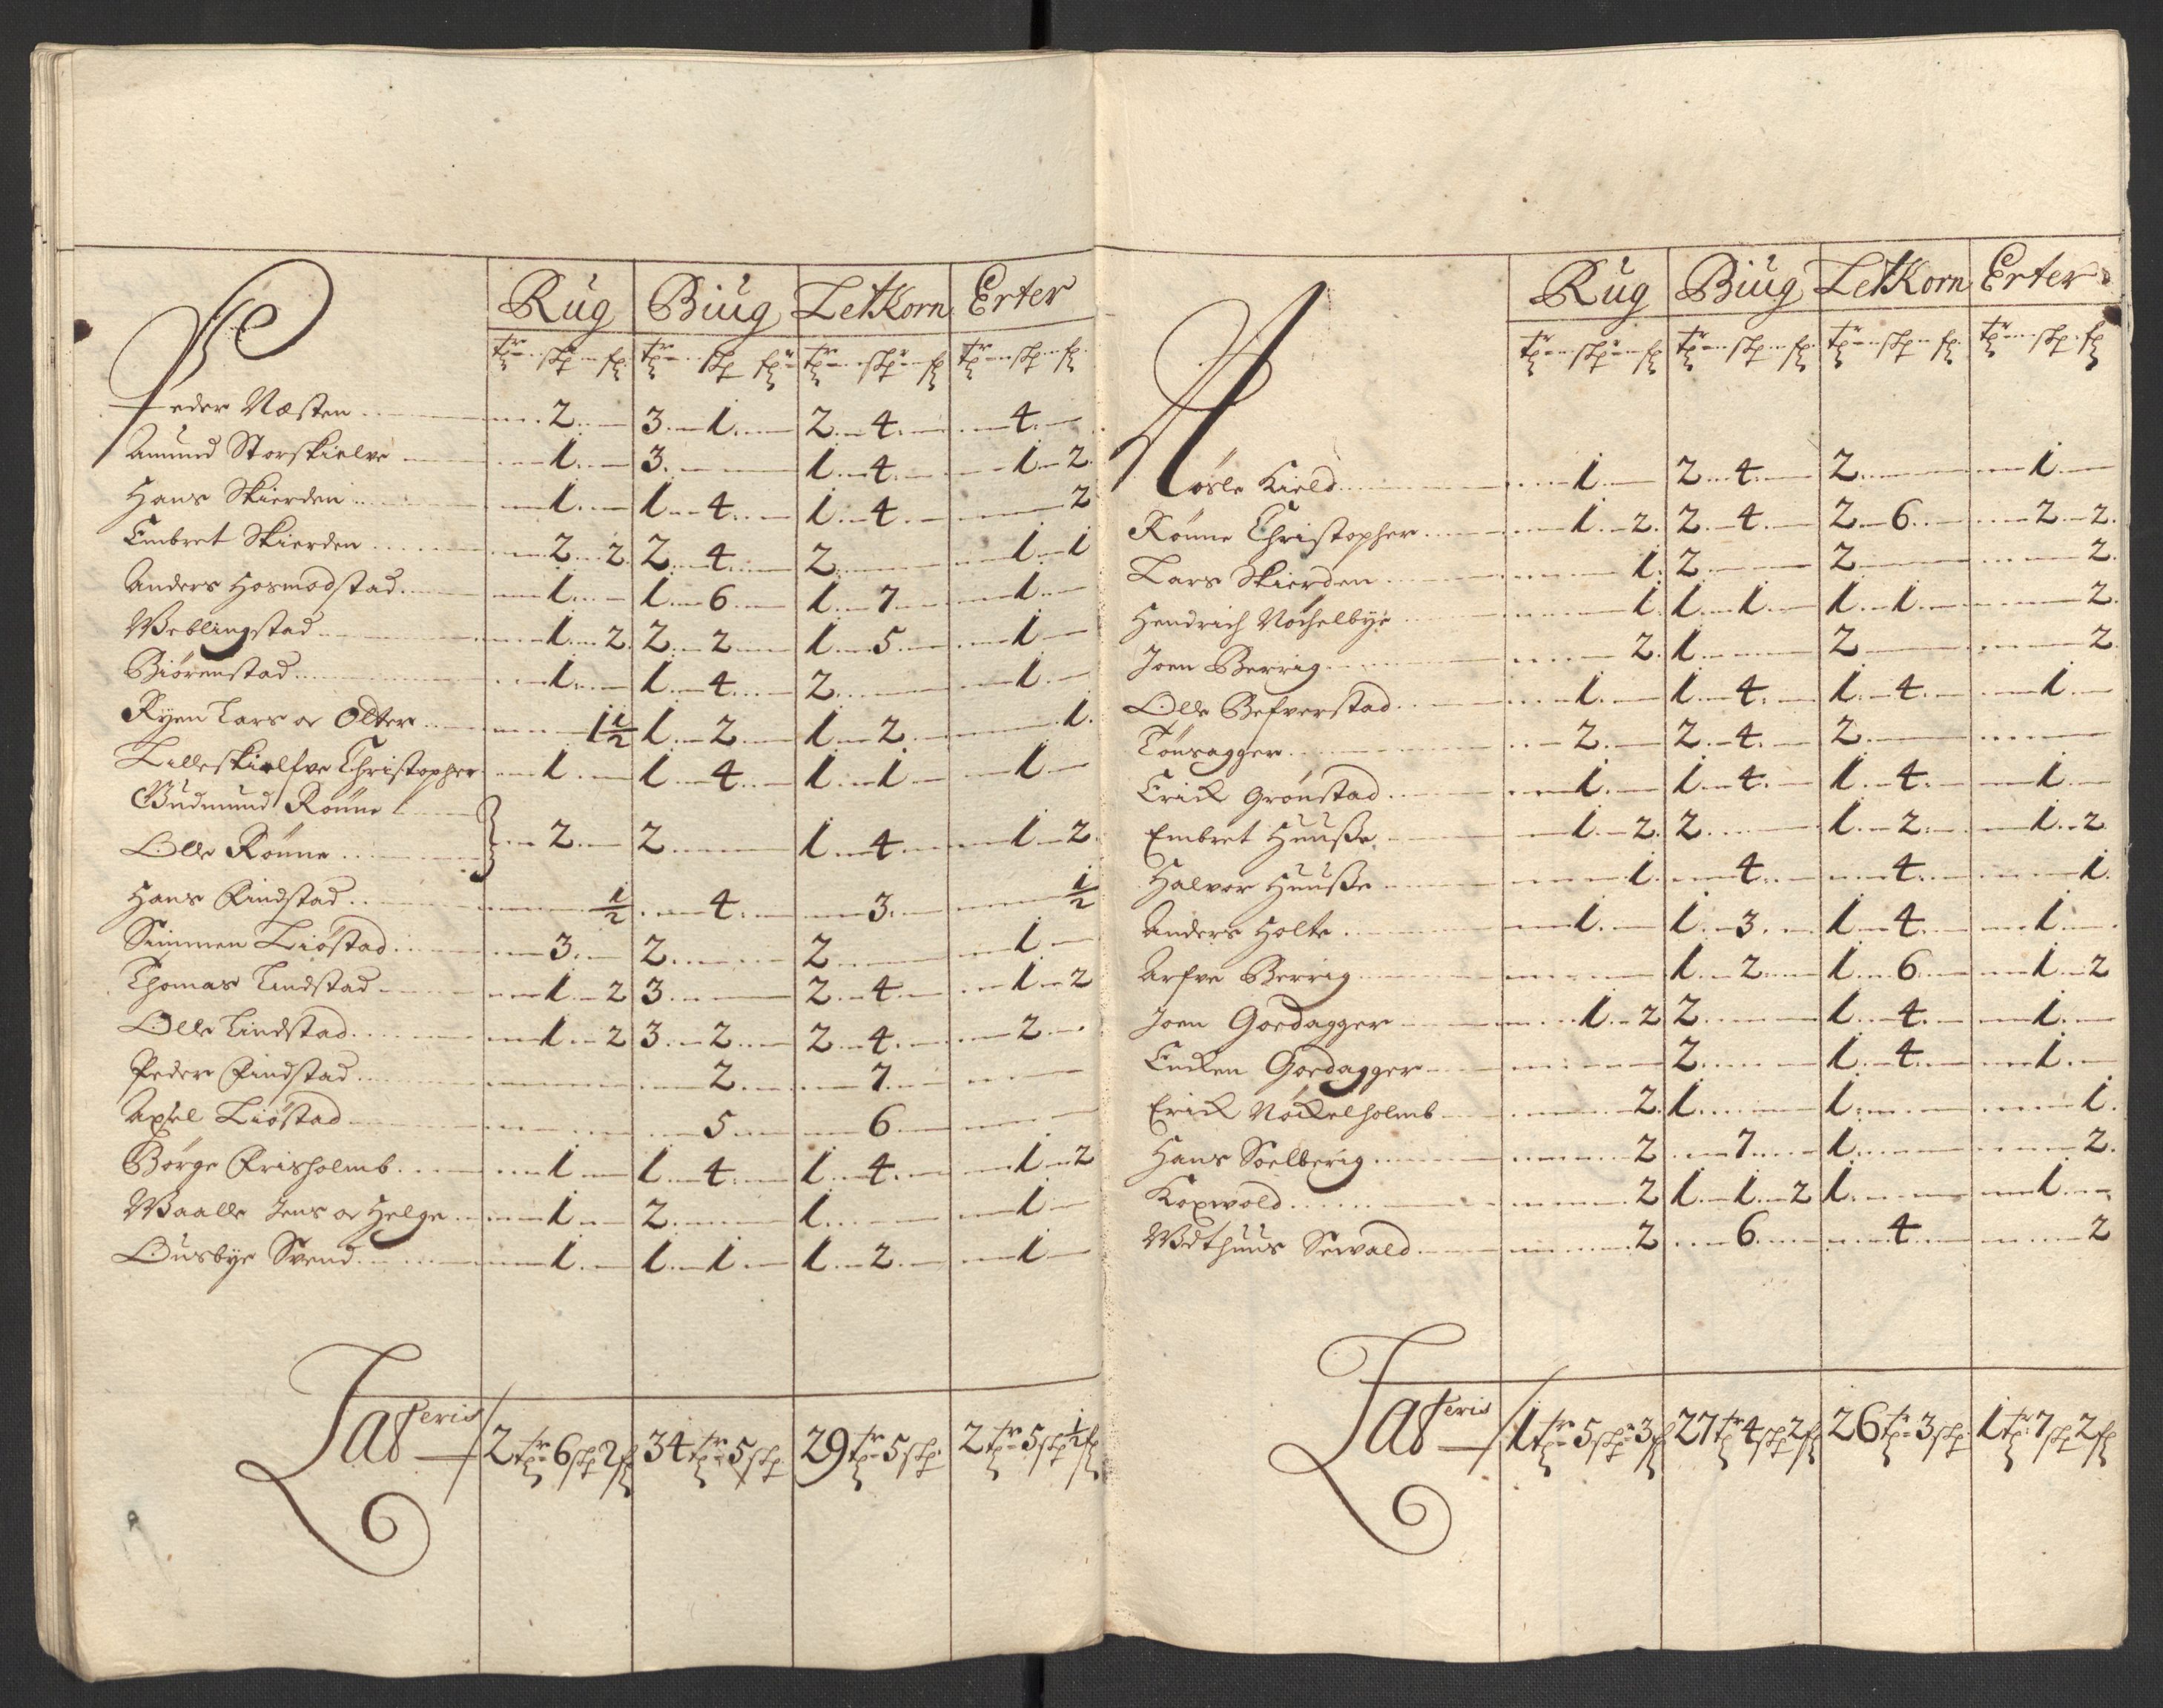 Rug Biug LetKorn Erter
tr skp fr tr skp fr tr skp fr tr skp fr
Peder Næsten 2 3 1 2 4 4
Amund Storskielve 1 3 1 4 1 2
Hans Skierden 1 1 4 1 4 2
Embret Skierden 2 2 2 4 2 1 1
Anders Hosmodstad 1 1 6 1 7 1
Weblingstad 1 2 2 2 1 5 1
Biörenstad 1 1 4 2 1
Ryen Lars oc Olter 1½ 1 2 1 2 1
Lilleskielfve Christopher 1 1 4 1 1 1
Gudmund Rönne
Olle Rönne 2 2 1 4 1 2
Hans Findstad ½ 4 3 ½
Simmen Liöstad 3 2 2 1
Thomas Lindstad 1 2 3 2 4 1 2
Olle Lindstad 1 2 3 2 2 4 2
Peder Findstad 2 7
Axsel Liöstad 5 6
Börge Frisholmb 1 1 4 1 4 1 2
Waalle Jens oc Helge 1 2 1 1
Ousbye Svend 1 1 1 1 2 1
Lateris 2 tr 6 skp 2 fr 34 tr 5 skp 29 tr 5 skp 2 tr 5 skp ½ fr
Rug Biug LetKorn Erter
tr skp fr tr skp fr tr skp fr tr skp fr
Aösle Kield 1 2 4 2 1
Rönne Christopher 1 2 2 4 2 6 2 2
Lars Skierden 1 2 2 2
Hendrich Nöchelbye 1 1 1 1 1 2
Joen Berrig 2 1 2 2
Olle Befverstad 1 1 4 1 4 1
Tönsagger 2 2 4 2
Erick Grönstad 1 1 4 1 4 1
Embret Huuße 1 2 2 1 2 1 2
Halvor Huuße 1 4 4 1
Anders Holte 1 1 3 1 4 1
Arfve Berrig 1 2 1 6 1 2
Joen Goedagger 1 2 2 1 4 1
Goedagger 2 1 4 1
Erick Nöckelholmb 2 1 1 1
Hans Soelberig 2 7 1 2
Kopwold 2 1 1 2 1 1
Widthuus Sewald 2 6 4 2
Lateris 1 tr 5 skp 3 fr 27 tr 4 skp 2 fr 26 tr 3 skp 1 tr 7 skp 2 fr